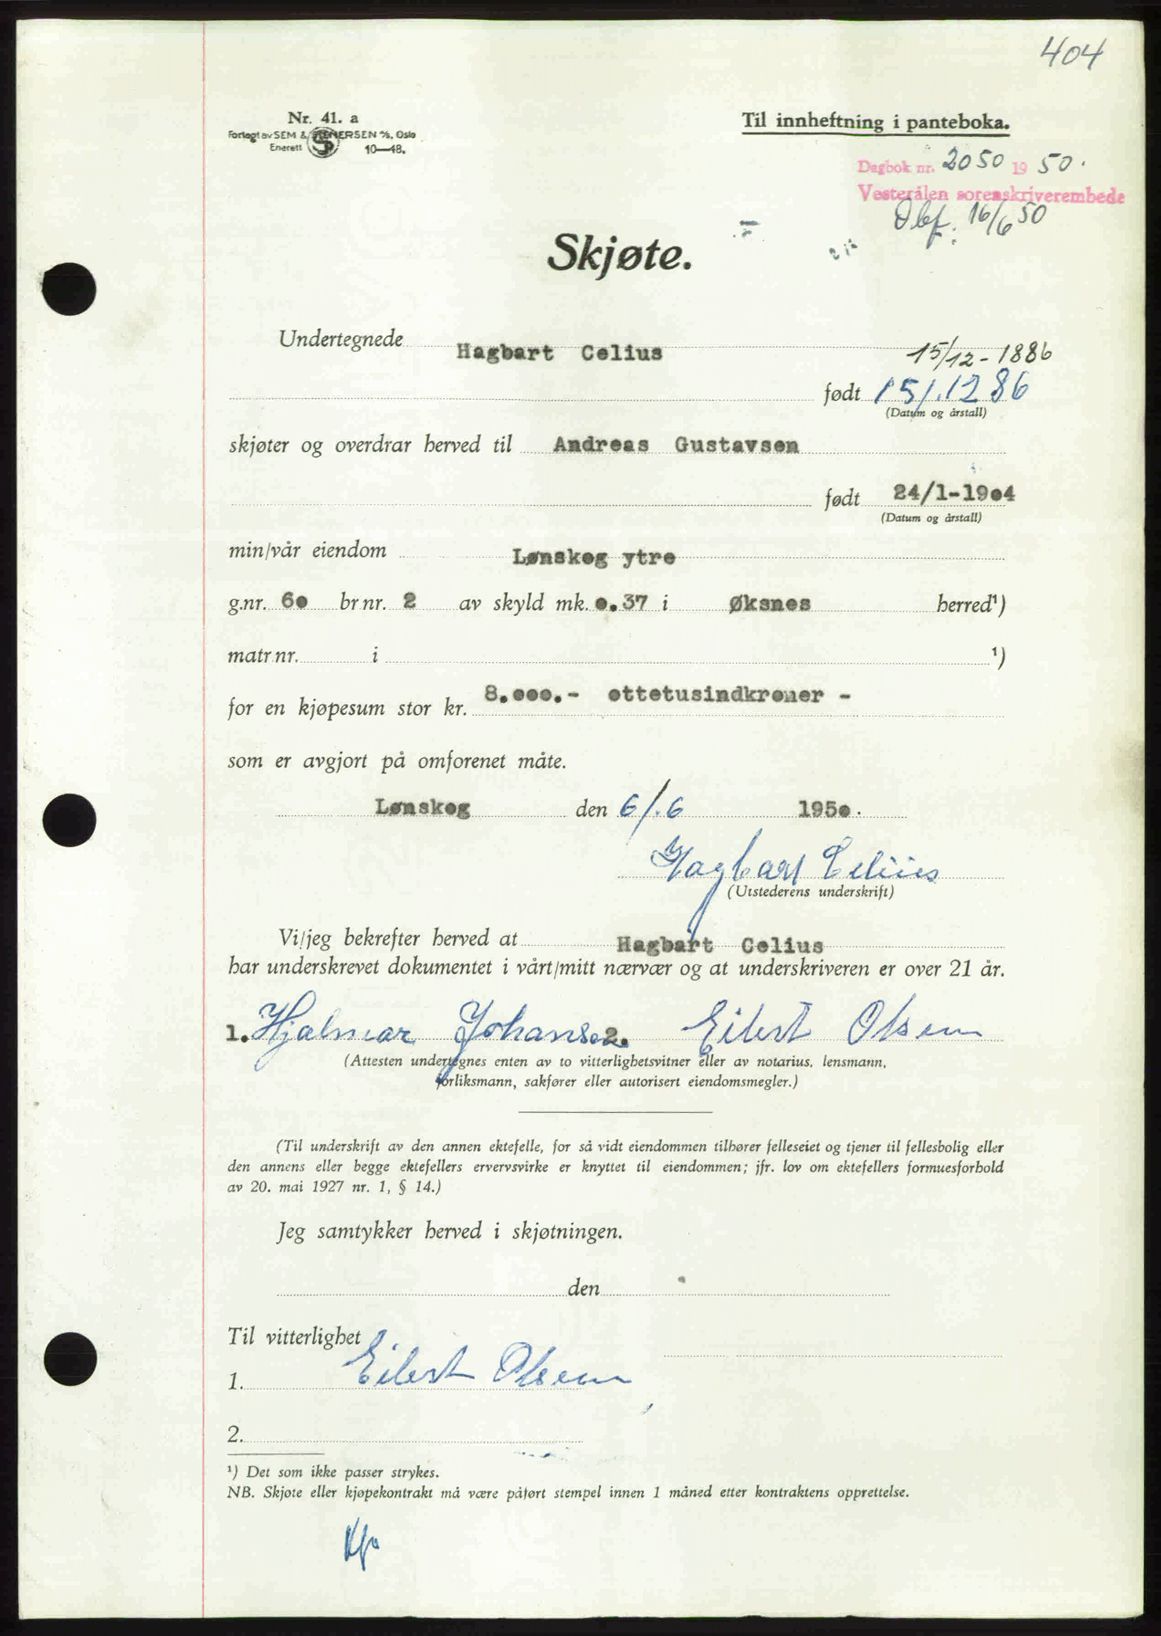 404
Nr. 41. a
Forlagt av SEM & STENERSEN A/S, Oslo
Enerett 10—48.
Til innheftning i panteboka.
Dagbok nr. 2050 19 50.
Vesterålen sorenskriverembede
16/6 50
Skjøte.
Undertegnede Hagbart Celius
15/12-1886
født 15/.12 86
(Datum og årstall)
skjøter og overdrar herved til Andreas Gustavsen
født 24/1-1904
(Datum og årstall)
min/vår eiendom Lønskog ytre
g.nr. 60 br nr. 2 av skyld mk. 0.37 i Øksnes herred¹)
matr.nr. i ¹)
for en kjøpesum stor kr. 8.000.- ottetusindkroner -
som er avgjort på omforenet måte.
Lønskog den 6/.6 1950.
Hagbart Celius
(Utstederens underskrift)
Vi/jeg bekrefter herved at Hagbart Celius
har underskrevet dokumentet i vårt/mitt nærvær og at underskriveren er over 21 år.
1. Hjalmar Johansen 2. Eilert Olsen
(Attesten undertegnes enten av to vitterlighetsvitner eller av notarius, lensmann,
forliksmann, sakfører eller autorisert eiendomsmegler.)
(Til underskrift av den annen ektefelle, for så vidt eiendommen tilhører felleseiet og tjener til fellesbolig eller
den annens eller begge ektefellers ervervsvirke er knyttet til eiendommen; jfr. lov om ektefellers formuesforhold
av 20. mai 1927 nr. 1, § 14.)
Jeg samtykker herved i skjøtningen.
den
Til vitterlighet
1. Eilert Olsen
2.
¹) Det som ikke passer strykes.
NB. Skjøte eller kjøpekontrakt må være påført stempel innen 1 måned etter kontraktens opprettelse.